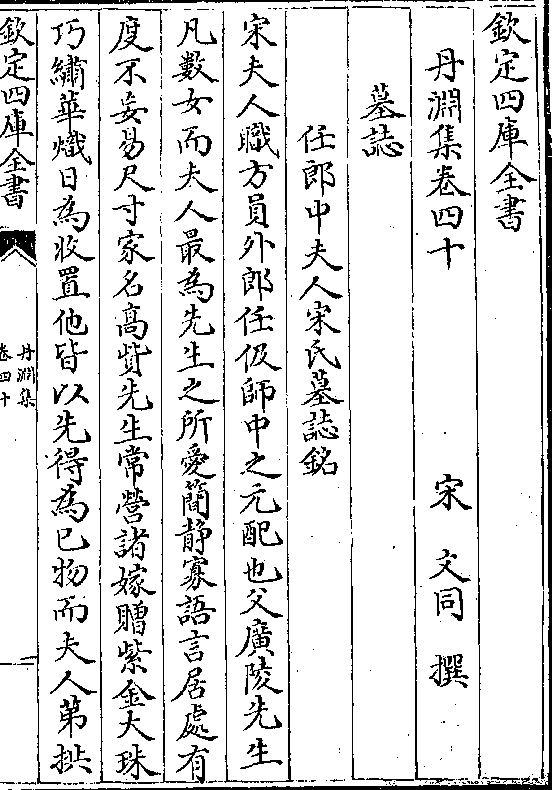 欽定四庫全書
丹淵集卷四十
宋 文同 撰
墓誌
任郎中夫人宋氏墓誌銘
宋夫人職方員外郎任伋師中之元配也父廣陵先生
凡數女而夫人最為先生之所愛簡静寡語言居處有
度不妄易尺寸家名高貲先生常營諸嫁賵紫金大珠
巧繡華熾日為收置他皆以先得為已物而夫人第拱
欽定四庫全書
丹淵集
卷四十